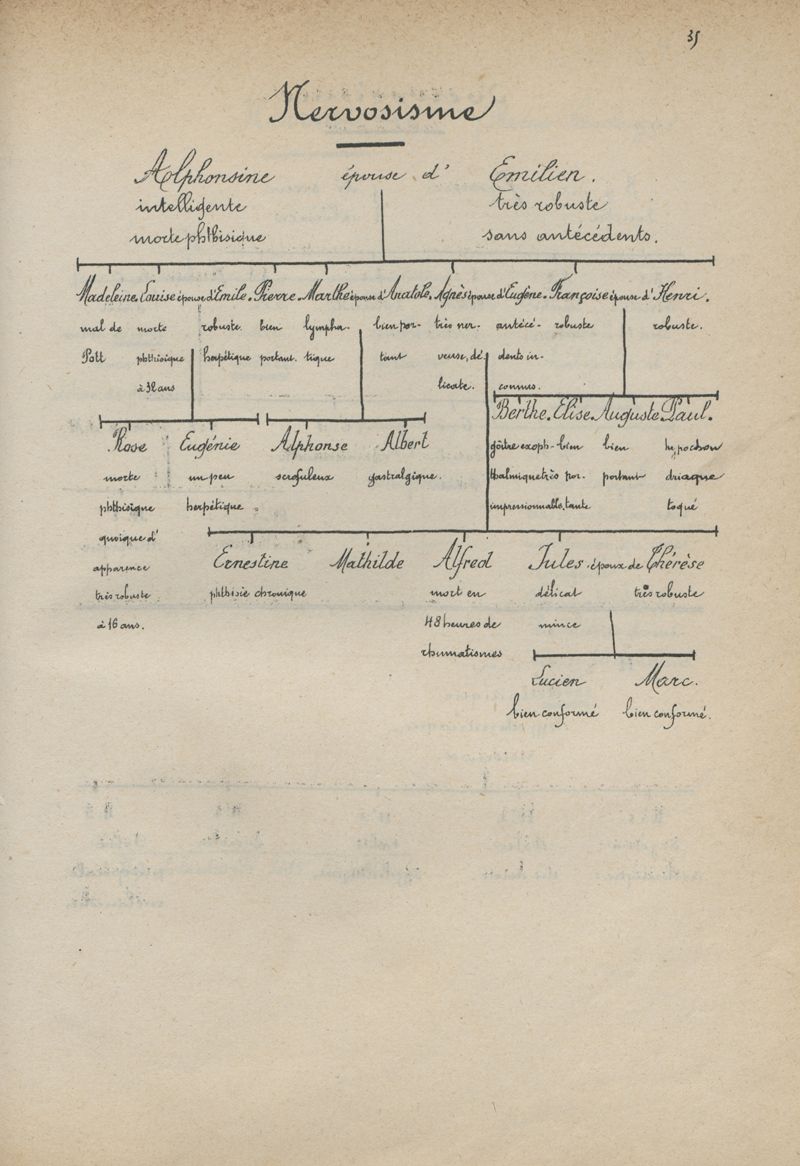 35
Nervosisme
Alphonsine épouse d' Emilien.
intelligente très robuste
morte phthisique sans antécédents.
Madeleine. Louise épouse d'Emile. Pierre. Marthe épouse d'Anatole. Agnès épouse d'Eugène. Françoise épouse d'Henri.
mal de morte robuste. bien lympha- bien por- très ner- antécé- robuste robuste.
Pott phthisique herpétique portant. tique tant veuse, dé dents in-
à 32 ans licate. connus.
Berthe. Elise. Auguste. Paul.
Rose Eugénie Alphonse Albert gôitre exoph- bien bien hypochon
morte un peu scrofuleux gastralgique. thalmique très por- portant driaque
phthisique herpétique. impressionnable. tante toqué
quoique d'
apparence Ernestine Mathilde Alfred Jules époux de Thérèse
très robuste phthisie chronique mort en délicat très robuste
à 16 ans. 48 heures de mince
rhumatismes
Lucien Marc.
bien conformé bien conformé.